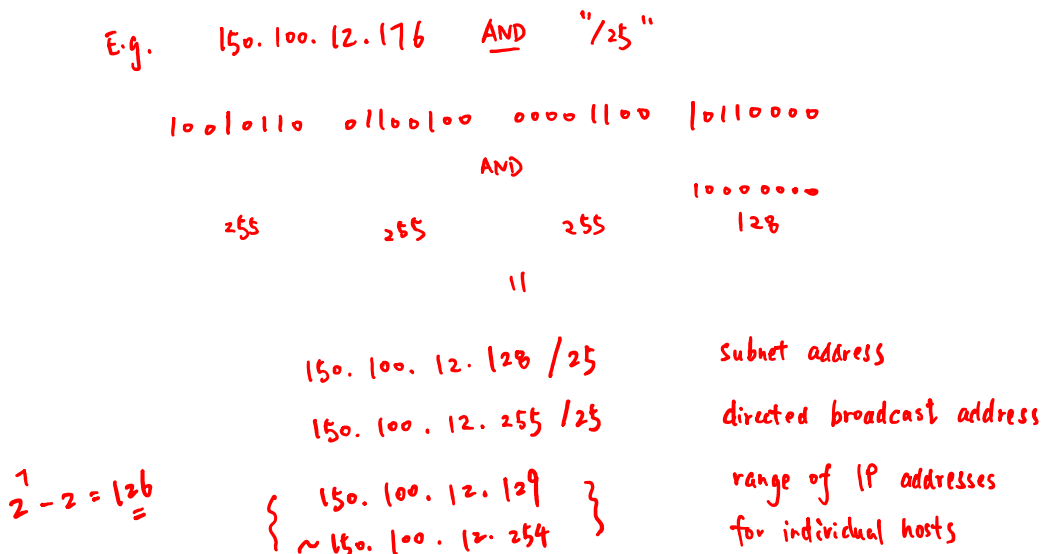 E.g. 150.100.12.176 AND "/25"
10010110 01100100 00001100 10110000
AND
10000000
255 255 255 128
||
150.100.12.128/25 subnet address
150.100.12.255/25 directed broadcast address
2^7-2=126 { 150.100.12.129 } range of IP addresses
~150.100.12.254 for individual hosts